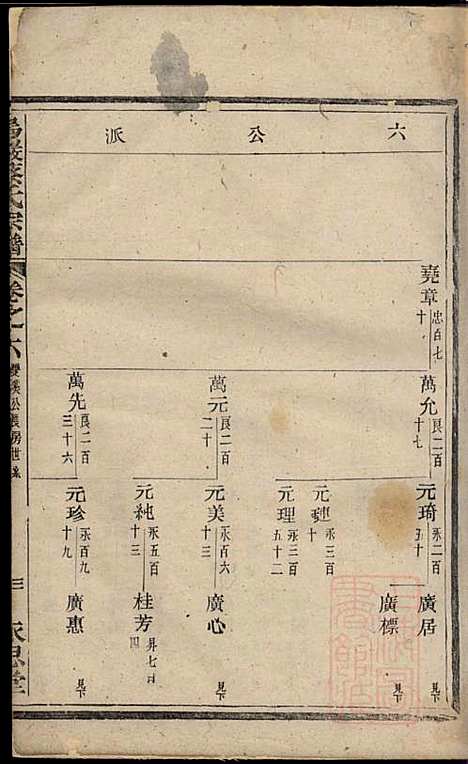 六公派
堯章 忠百七十
萬允 良二百十七
萬元 良二百二十
萬先 良二百三十六
元琦 永二百五十
元璉 永三百十
元理 永三百五十二
元美 永百六十三
元純 永五百十三
元珍 永百九十九
廣居 見下
廣標 見下
廣心 見下
桂芳 昇七百四
廣惠 見下
蔡氏宗譜
卷之六
公長房世系
三